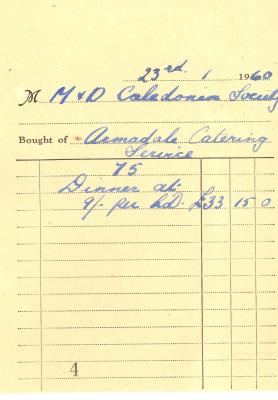 23rd. 1 1960
M M & D Caledonian Society
Bought of Armadale Catering
Service
75
Dinner at
9/- per hd. £33 15 0
4